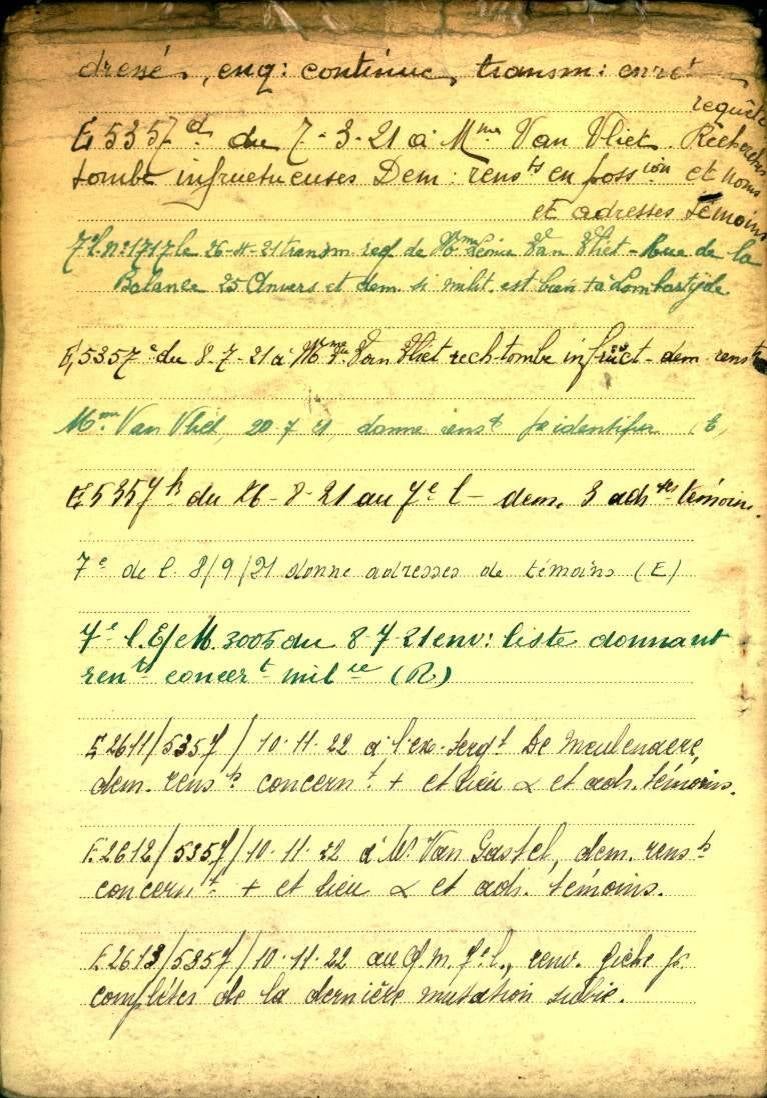 dressé, enq: continue, transm: enré
requête
E, 5357 d du 7-3-21 à Mme Van Vliet. Recherches
tombe infructueuses Dem: rensts en possion et noms
et adresses témoins
7e l. n: 1717 le 26-4-21 transm req de Mme Van Vliet - Rue de la
Balance 25 Anvers et dem. si milit. est bien + à Lombartzyde
E, 5357 e du 8-7-21 à Mme Van Vliet rech tombe infruct - dem renst
Mme Van Vliet, 20-7-21, donne renst pr identifier (E)
E 5357 h du -8-21 au 7e l - dem. 3 adrses témoins.
7e de l. 8/9/21 donne adresses de témoins (E)
7e l. E/M. 3005 du 8-7-21 env: liste donnant
rent concert milre (R)
E 2611/5357/10.11.22 à l'ex-sergt De Meulenaere,
dem. rensts concernt + et lieu α et adr. témoins.
E 2612/5357/10.11.22 à Mr Van Gastel, dem. rensts
concernt + et lieu α et adr. témoins.
E 2613/5357/10.11.22 au Q.M. 7e l., renv. fiche pr
compléter de la dernière mutation subie.